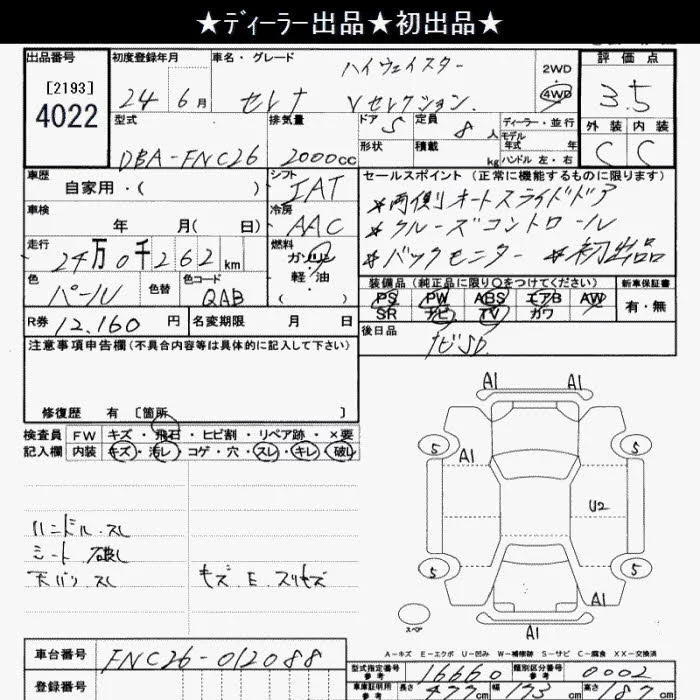 ★ディーラー出品★初出品★
出品番号
[2193]
4022
初度登録年月
24 6 月
車名・グレード
ハイウェイスター
セレナ Vセレクション
2WD
4WD
評価点
3.5
外装 内装
C C
型式
DBA-FNC26
排気量
2000 cc
ドア 5
形状
定員 8 人
積載 kg
ディーラー・並行
モデル
年式 年
ハンドル 左・右
車歴
自家用・( )
シフト
IAT
車検
年 月( 日)
冷房
AAC
走行
24 万 0 千 262 km
燃料
ガソリン
軽・油
( )
色
パール
色替
色コード
QAB
R券 12,160 円
名変期限 月 日
セールスポイント (正常に機能するものに限ります)
*両側オートスライドドア
*クルーズコントロール
*バックモニター *初出品
装備品 (純正品に限り○をつけてください)
PS PW ABS エアB AW
SR ナビ TV カワ
新車保証書
有・無
後日品
ナビSD
注意事項申告欄(不具合内容等は具体的に記入して下さい)
修復歴 有 〔箇所 〕
検査員
記入欄
FW キズ・飛石・ヒビ割・リペア跡・×要
内装 キズ・汚レ・コゲ・穴・スレ・キレ・破レ
ハンドル スレ
シート 破レ
天バリ スレ
キズ E スリキズ
A1 A1
5 5
A1
U2
5 5
A1
A1
スペア
A-キズ E-エクボ U-凹み W-補修跡 S-サビ C-腐食 XX-交換済
車台番号 FNC26-012088
登録番号
型式指定番号
参考
16660
類別区分番号
参考
0002
車庫証明用
参考
長さ 477 cm 幅 173 cm 高さ 187 cm